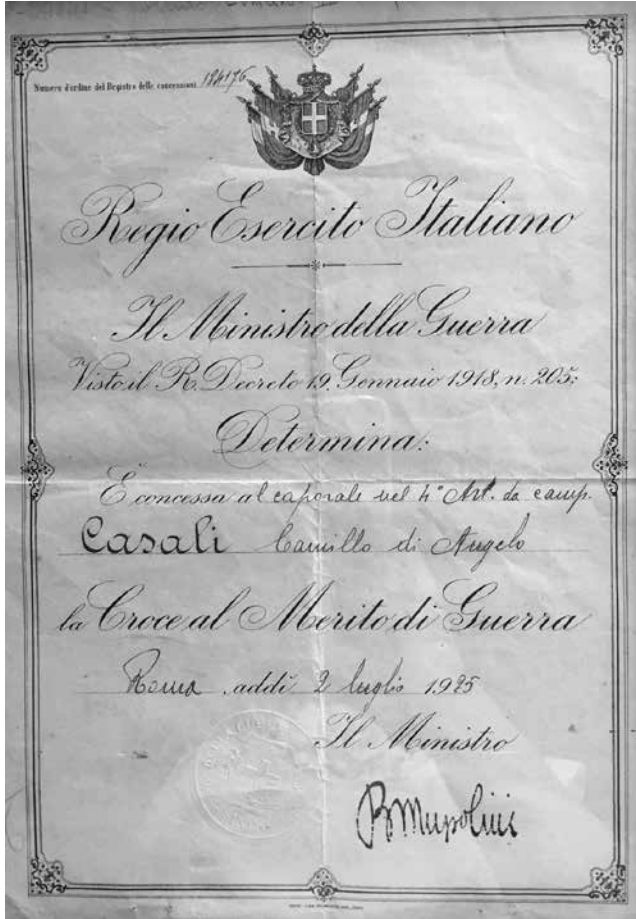 Numero d'ordine del Registro delle concessioni 124176
Regio Esercito Italiano
Il Ministro della Guerra
Visto il R. Decreto 19 Gennaio 1918, n. 205;
Determina:
È concessa al caporale nel 4° Art. da camp.
Casali Camillo di Angelo
la Croce al Merito di Guerra
Roma, addì 2 luglio 1925
Il Ministro
BMussolini